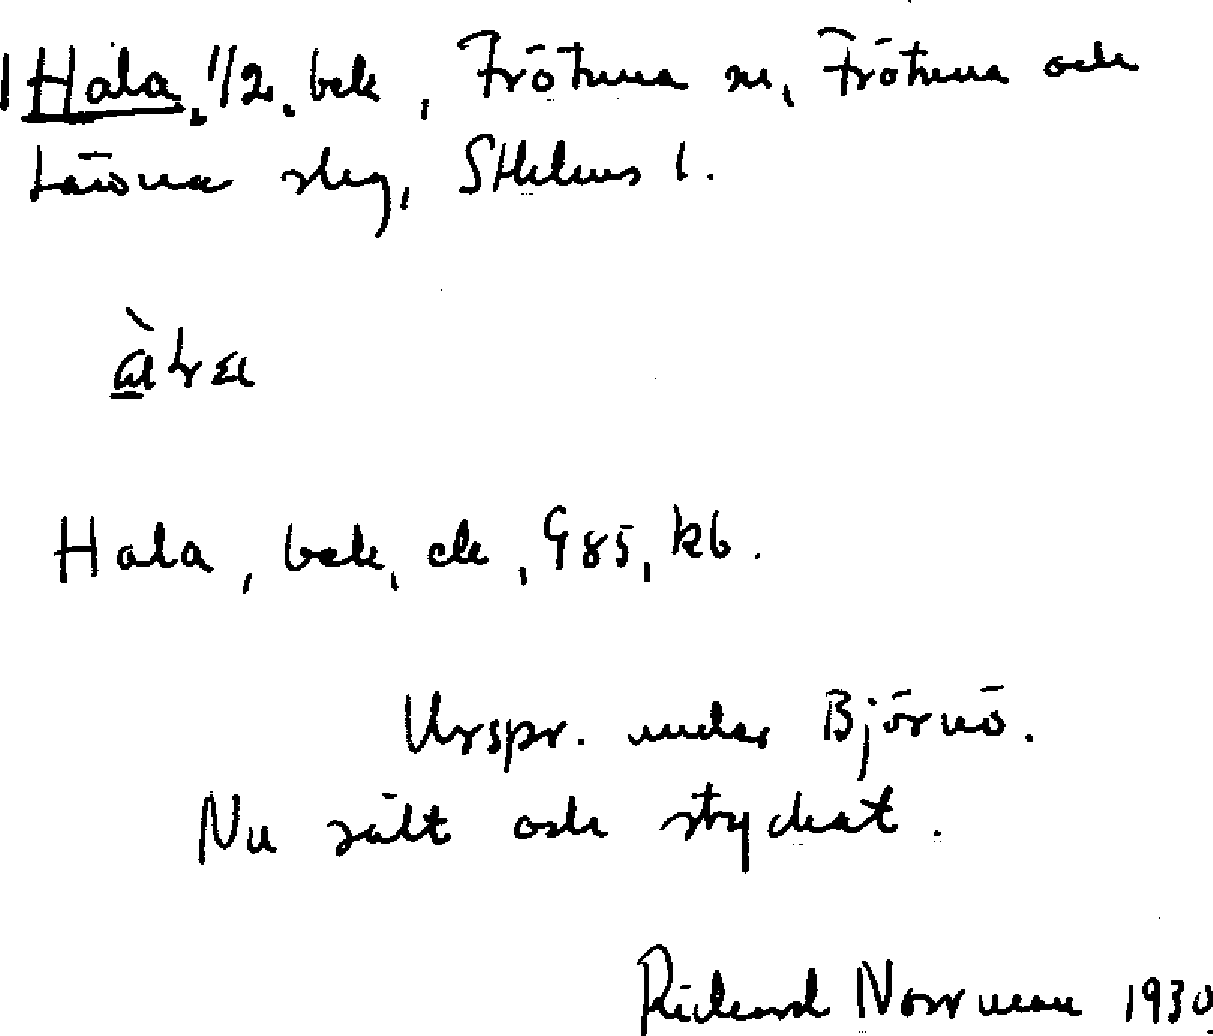 Hata, 1/2, bek, Frötuna sn, Frötuna och
Länna slg, Sthlms l.
Hata, bek, ek, G85, kb.
Urspr. under Björnö.
Nu sålt och styckat.
Rickard Norrman 1930